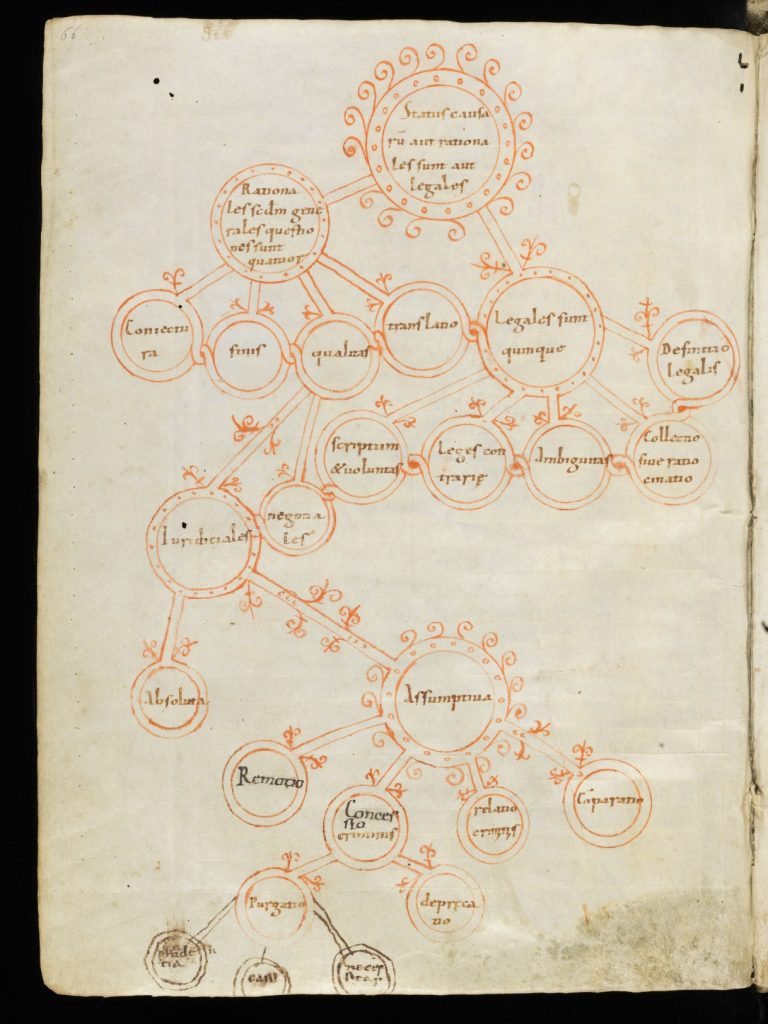 66
Status causa
rū aut rationa
les sunt aut
legales
Rationa
les secdm gene
rales questio
nes sunt
quatuor
Coniectu
ra
finis
qualitas
translatio
Legales sunt
quinque
Definitio
legalis
scriptum
& voluntas
Leges con
trarię
Ambiguitas
Collectio
siue ratio
cinatio
Iuridiciales
negotia
les
Absoluta
Assumptiua
Remotio
Conces
sio
criminis
relatio
Cōparatio
Purgatio
depręca
tio
casus
necessi
tas